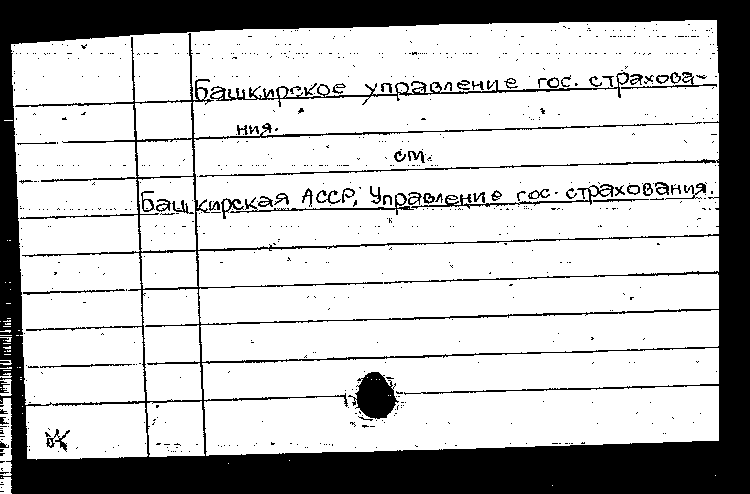 Башкирское управление гос. страхова-
ния.
см.
Башкирская АССР, Управление гос. страхования.